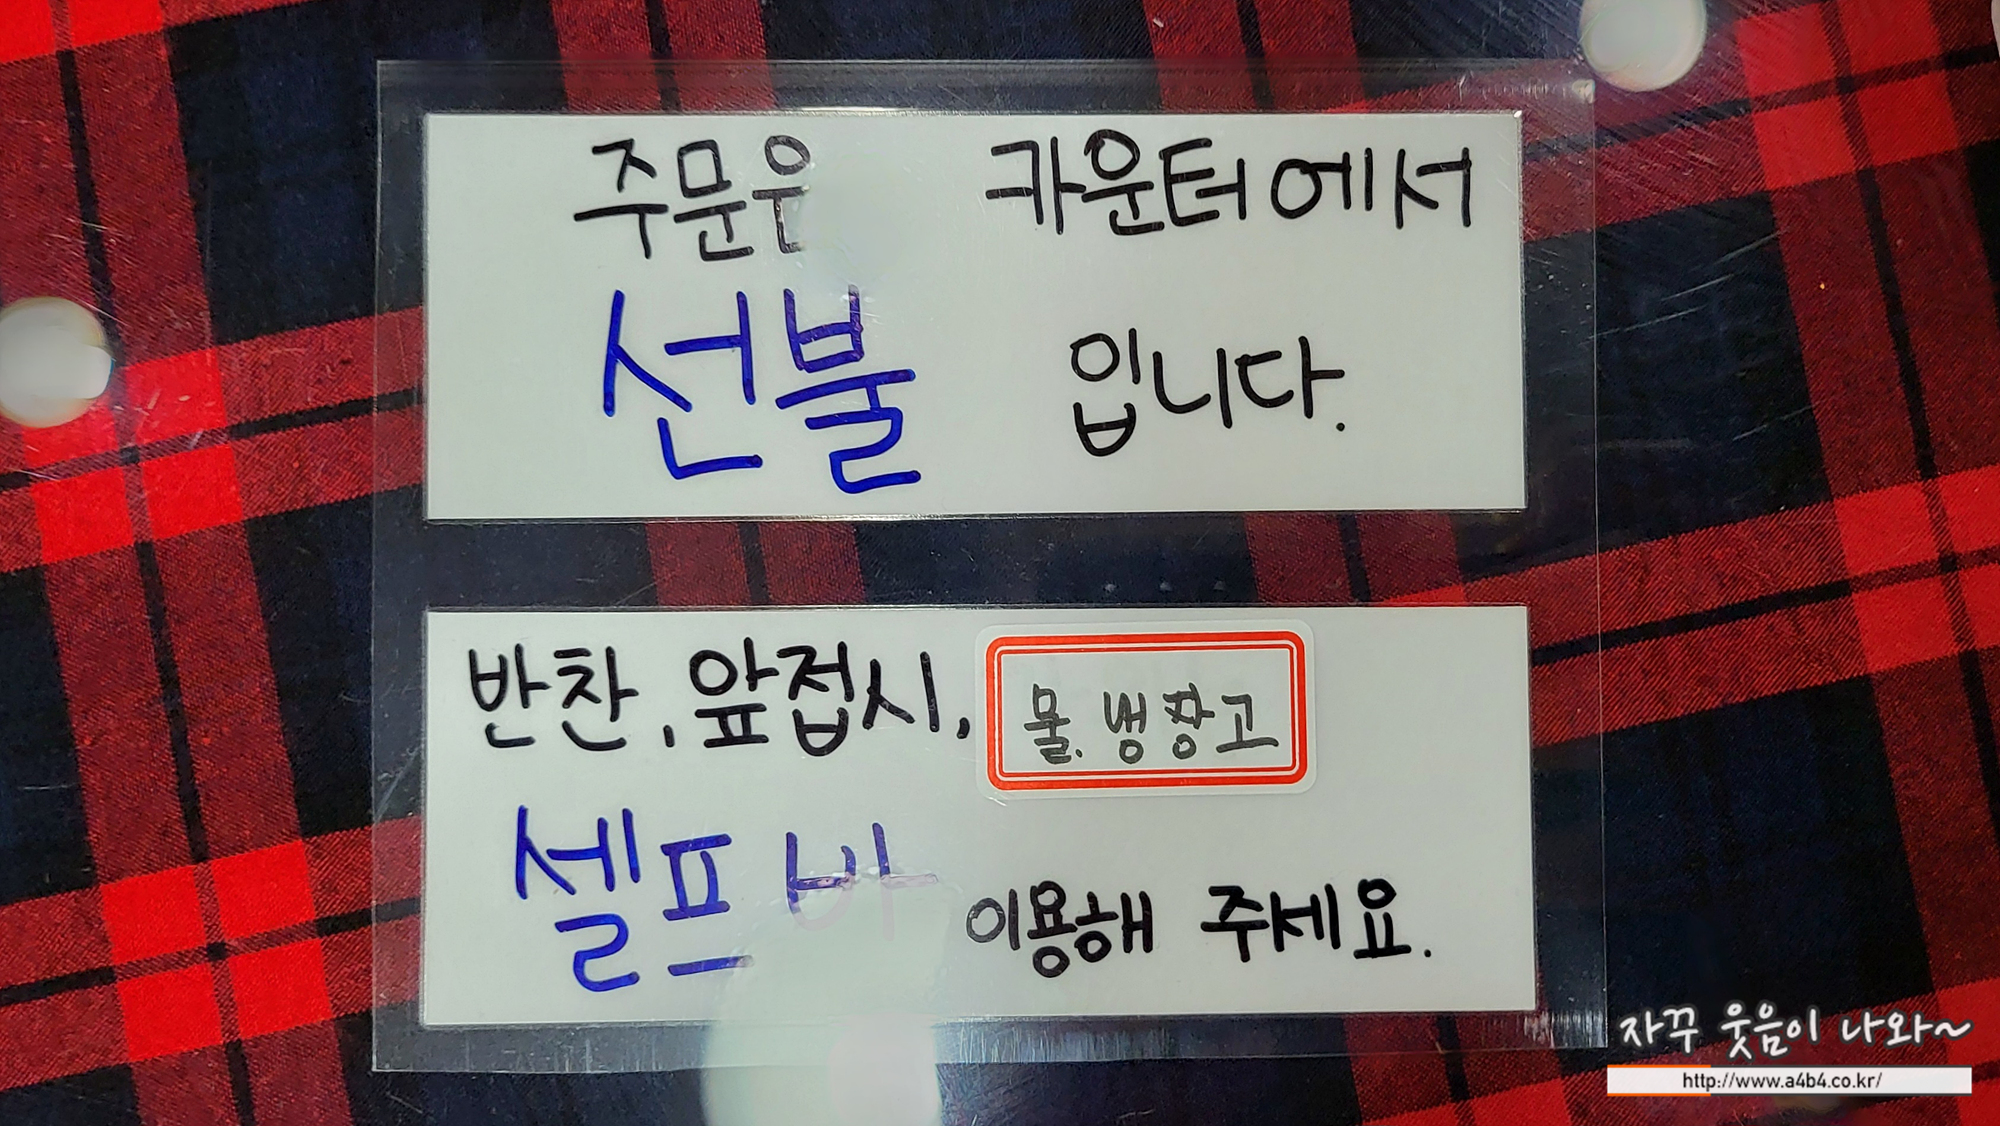 주문은 카운터에서
선불 입니다.
반찬, 앞접시, 물. 냉장고
셀프 바 이용해 주세요.
자꾸 웃음이 나와~
http://www.a4b4.co.kr/